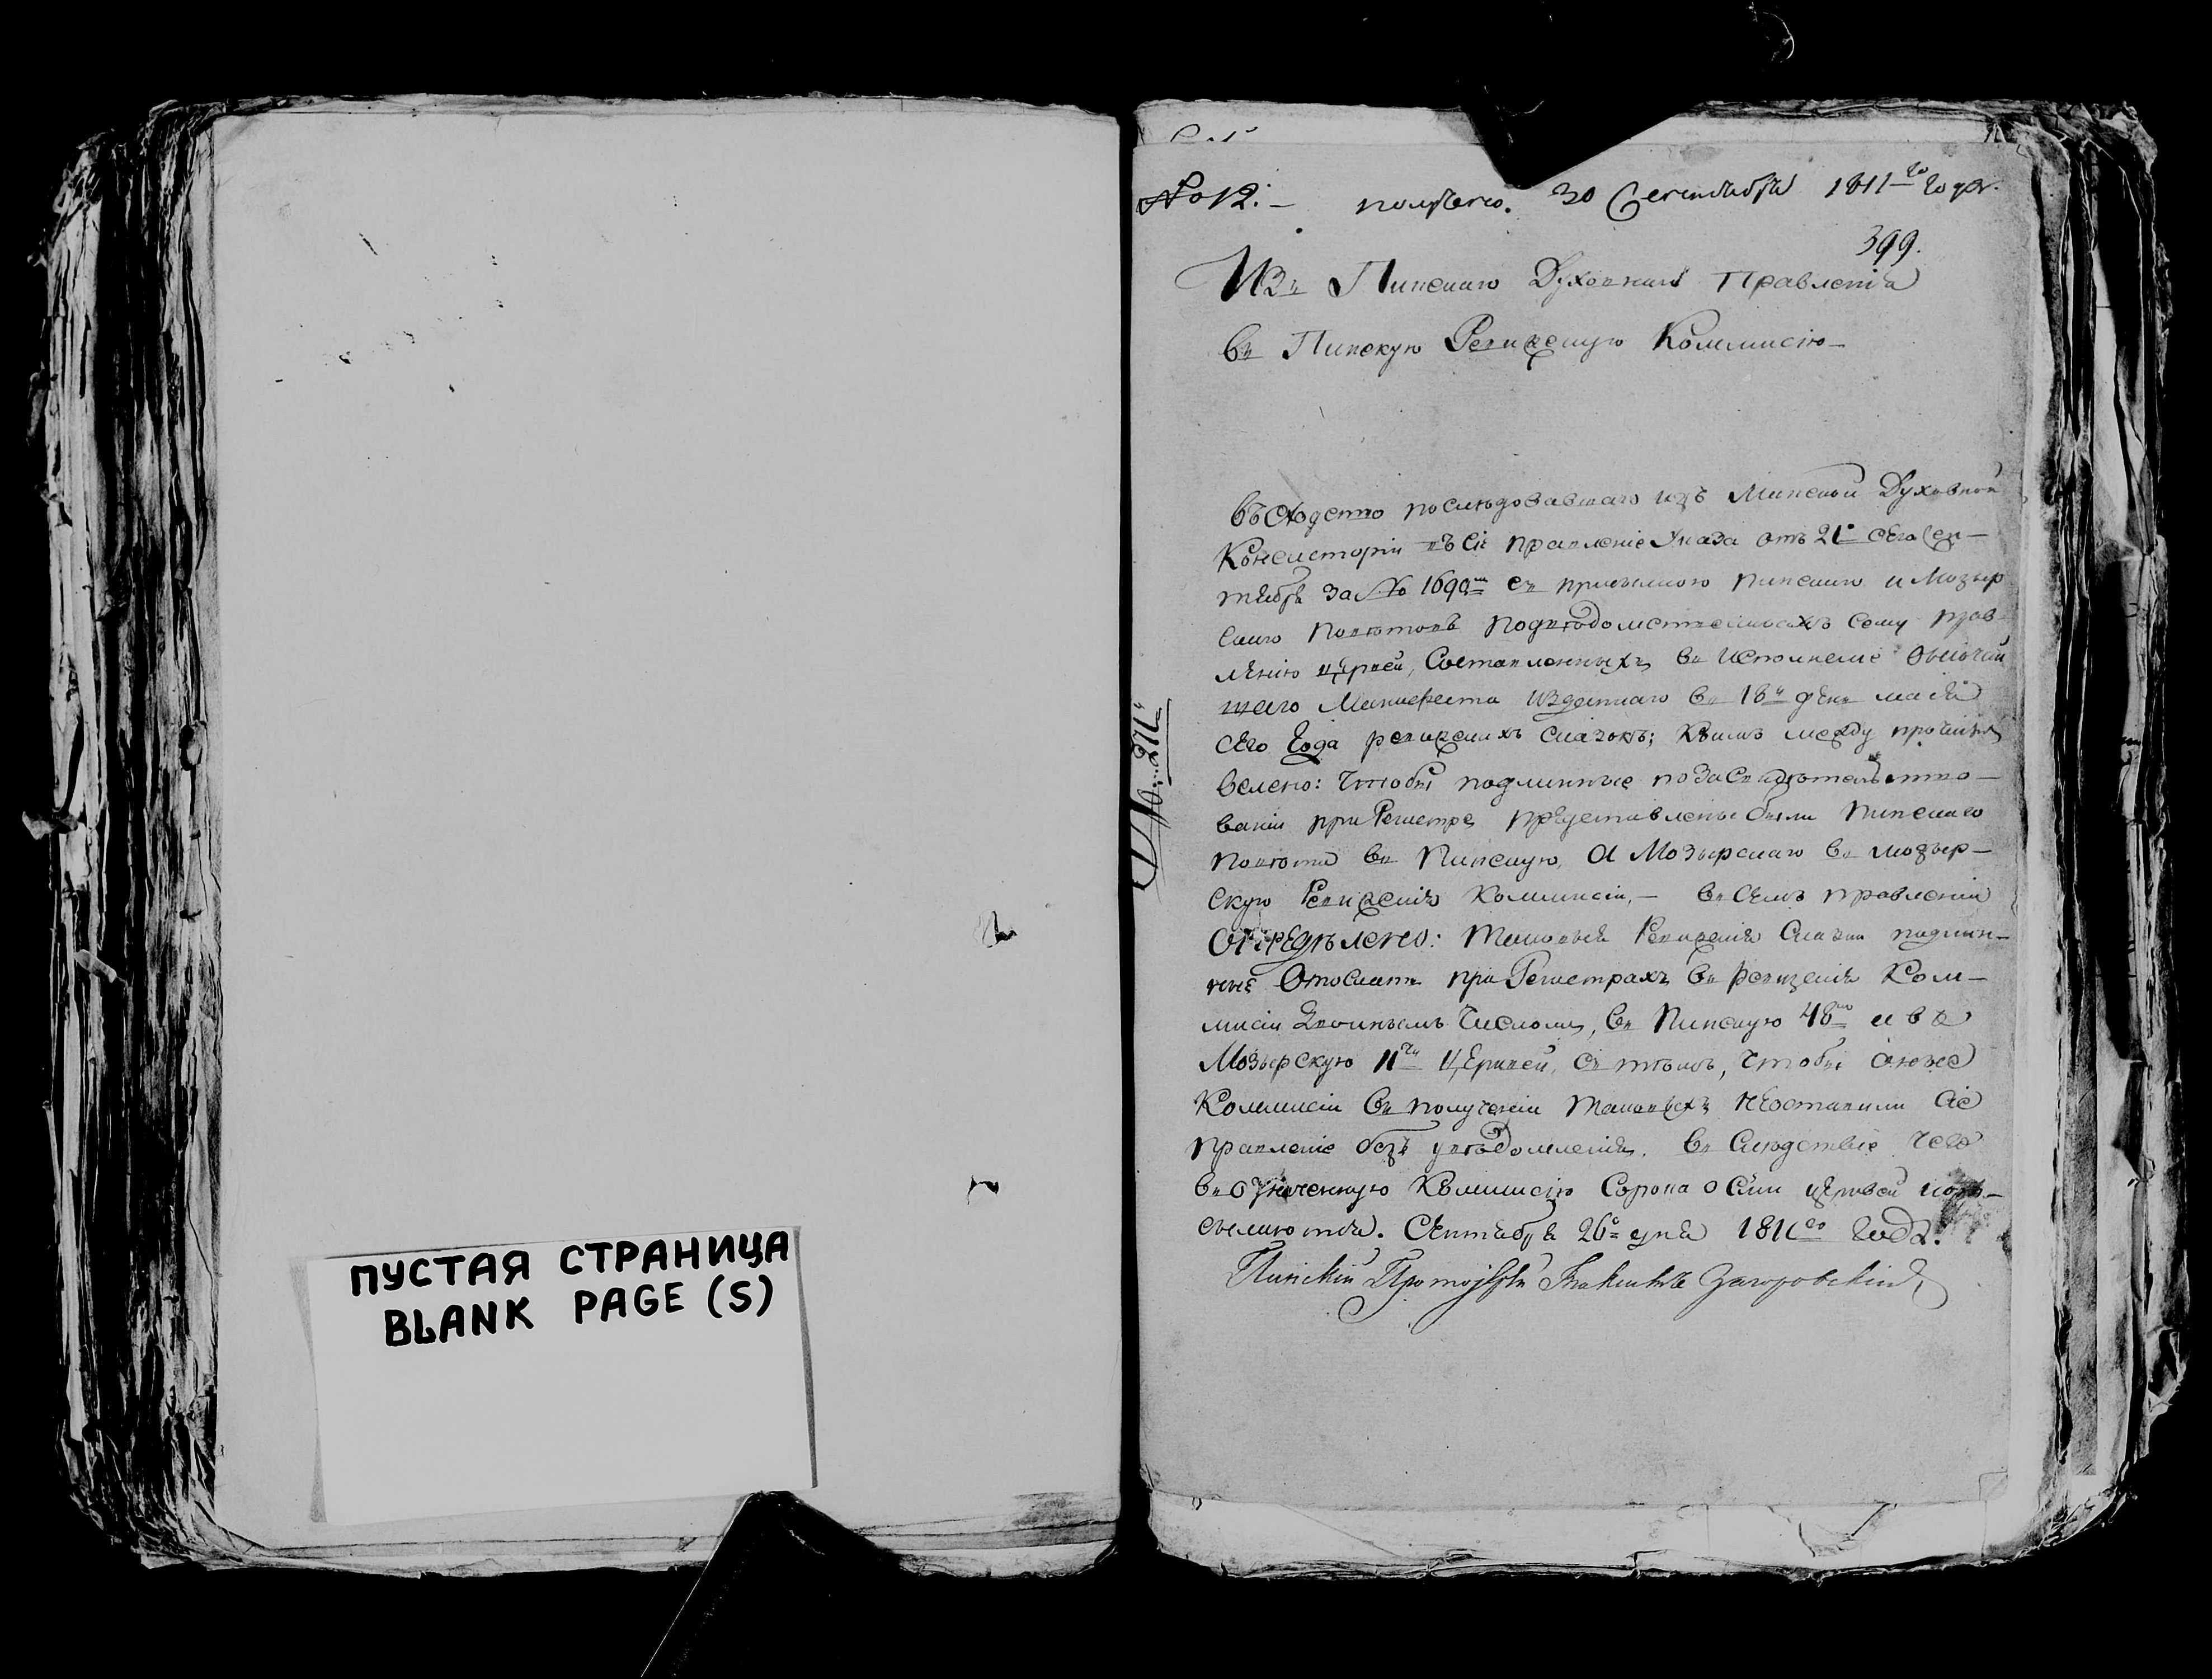 ПУСТАЯ СТРАНИЦА
BLANK PAGE (S)
№ 12:– получено. 30 Сентября 1811го года.
399.
Изъ Пинскаго Духовнаго Правленія
въ Пинскую Ревизскую Коммисію–
Въ сходство последовавшаго изъ Минской Духовной
Консисторіи въ сіе правленіе Указа отъ 21 сего сен–
тября за № 1690м съ присылкою пинскаго и Мозыр
скаго поветовъ подведомственныхъ сему прав
лению церквей, составленныхъ въ исполненіе Высочай
шаго Манифеста изданнаго въ 18й день маія
сего года ревизскихъ сказокъ; коимъ между прочимъ
велено: чтобы подлинные по засвидѣтельство–
ваніи при Регистре представлены были Пинскаго
повѣта въ Пинскую, а Мозырскаго въ мозыр–
скую Ревизскія Коммисіи,– въ семъ правленіи
Опредѣлено: таковыя Ревизскія Сказки подлин–
ныя Отослать при Регистрахъ въ ревизскія Ком–
мисіи двойнымъ числомъ, въ Пинскую 48мо и въ
Мозырскую 11ти церквей, съ темъ, чтобы оныя
Коммисіи въ полученіи таковыхъ неоставили сіе
правленіе безъ уведомленія. Въ следствіе чего
въ означенную Коммисію Сорока осми церквей
сылаются. Сентября 26го дня 1811го года.
Пинскій Протоіерей Загоровскій
№: 271й